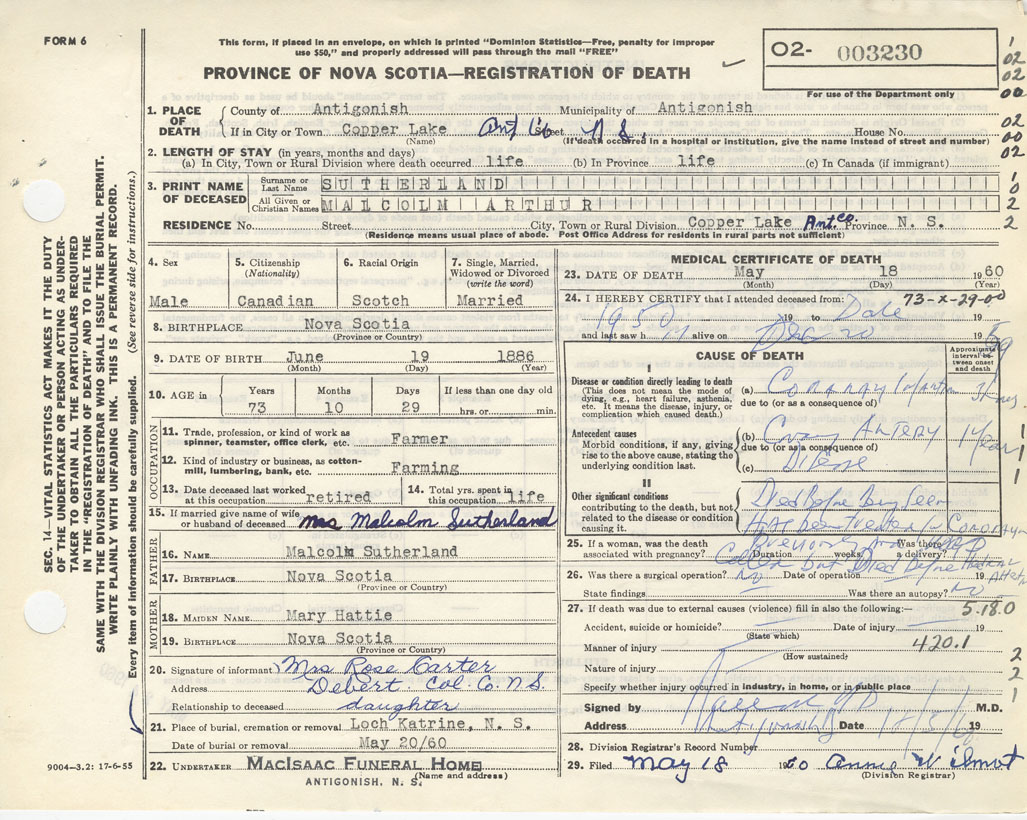 FORM 6
This form, if placed in an envelope, on which is printed "Dominion Statistics—Free, penalty for improper
use $50," and properly addressed will pass through the mail "FREE"
PROVINCE OF NOVA SCOTIA—REGISTRATION OF DEATH
02- 003230
For use of the Department only
02
02
00
1. PLACE OF DEATH
County of Antigonish Municipality of Antigonish
If in City or Town Copper Lake Ant Co Street N S. House No.
(Name) (If death occurred in a hospital or institution, give the name instead of street and number)
02
00
02
2. LENGTH OF STAY (in years, months and days)
(a) In City, Town or Rural Division where death occurred life (b) In Province life (c) In Canada (if immigrant)
3. PRINT NAME OF DECEASED
Surname or Last Name SUTHERLAND
All Given or Christian Names MALCOLM ARTHUR
RESIDENCE No. Street City, Town or Rural Division Copper Lake Ant Co. Province N. S.
(Residence means usual place of abode. Post Office Address for residents in rural parts not sufficient)
4. Sex
Male
5. Citizenship
(Nationality)
Canadian
6. Racial Origin
Scotch
7. Single, Married, Widowed or Divorced
(write the word)
Married
8. BIRTHPLACE Nova Scotia
(Province or Country)
9. DATE OF BIRTH June 19 1886
(Month) (Day) (Year)
10. AGE in
Years Months Days If less than one day old
73 10 29 hrs. or min.
OCCUPATION
11. Trade, profession, or kind of work as
spinner, teamster, office clerk, etc. Farmer
12. Kind of industry or business, as cotton-
mill, lumbering, bank, etc. Farming
13. Date deceased last worked
at this occupation retired
14. Total yrs. spent in
this occupation life
15. If married give name of wife
or husband of deceased Mrs Malcolm Sutherland
FATHER
16. NAME Malcolm Sutherland
17. BIRTHPLACE Nova Scotia
(Province or Country)
MOTHER
18. MAIDEN NAME Mary Hattie
19. BIRTHPLACE Nova Scotia
(Province or Country)
20. Signature of informant Mrs Rose Carter
Address Debert Col. Co. N.S.
Relationship to deceased daughter
21. Place of burial, cremation or removal Loch Katrine, N. S.
Date of burial or removal May 20/60
22. UNDERTAKER MACISAAC FUNERAL HOME
ANTIGONISH, N. S. (Name and address)
MEDICAL CERTIFICATE OF DEATH
23. DATE OF DEATH May 18 1960
(Month) (Day) (Year)
24. I HEREBY CERTIFY that I attended deceased from: 73-x-29-00
1950 19 to Date 19
and last saw h alive on 19 59
CAUSE OF DEATH
Approximate interval between onset and death
I
Disease or condition directly leading to death
(This does not mean the mode of dying, e.g., heart failure, asthenia, etc. It means the disease, injury, or complication which caused death.)
(a) Coronary Infarction
due to (or as a consequence of)
Antecedent causes
Morbid conditions, if any, giving rise to the above cause, stating the underlying condition last.
(b) Artery 1 year
due to (or as a consequence of)
(c) Disease
II
Other significant conditions
contributing to the death, but not related to the disease or condition causing it.
Died Before Being Seen
Has been treated for Coronary
25. If a woman, was the death associated with pregnancy? Duration weeks. Was there a delivery?
Called but Died before
26. Was there a surgical operation? No Date of operation 19
State findings Was there an autopsy? No
27. If death was due to external causes (violence) fill in also the following:— 5.18.0
Accident, suicide or homicide? Date of injury 19
(State which)
Manner of injury 420.1
(How sustained)
Nature of injury
Specify whether injury occurred in industry, in home, or in public place
Signed by M.D.
Address Antigonish Date 18/5/60 19
28. Division Registrar's Record Number
29. Filed May 18 1960 Annie Wilmot
(Division Registrar)
SEC. 14—VITAL STATISTICS ACT MAKES IT THE DUTY
OF THE UNDERTAKER OR PERSON ACTING AS UNDER-
TAKER TO OBTAIN ALL THE PARTICULARS REQUIRED
IN THE "REGISTRATION OF DEATH" AND TO FILE THE
SAME WITH THE DIVISION REGISTRAR WHO SHALL ISSUE THE BURIAL PERMIT.
WRITE PLAINLY WITH UNFADING INK. THIS IS A PERMANENT RECORD.
Every item of information should be carefully supplied. (See reverse side for instructions.)
9004-3.2: 17-6-55